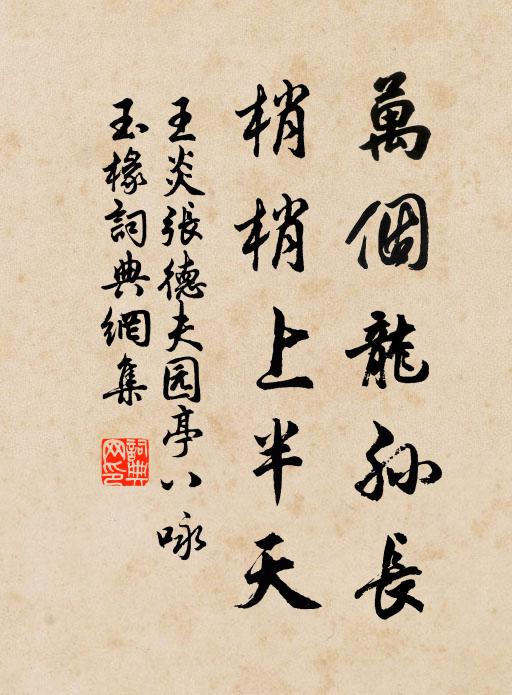 萬個龍孫長
梢梢上半天
王炎張德夫园亭八咏
玉椽詞典網集
詞典网印